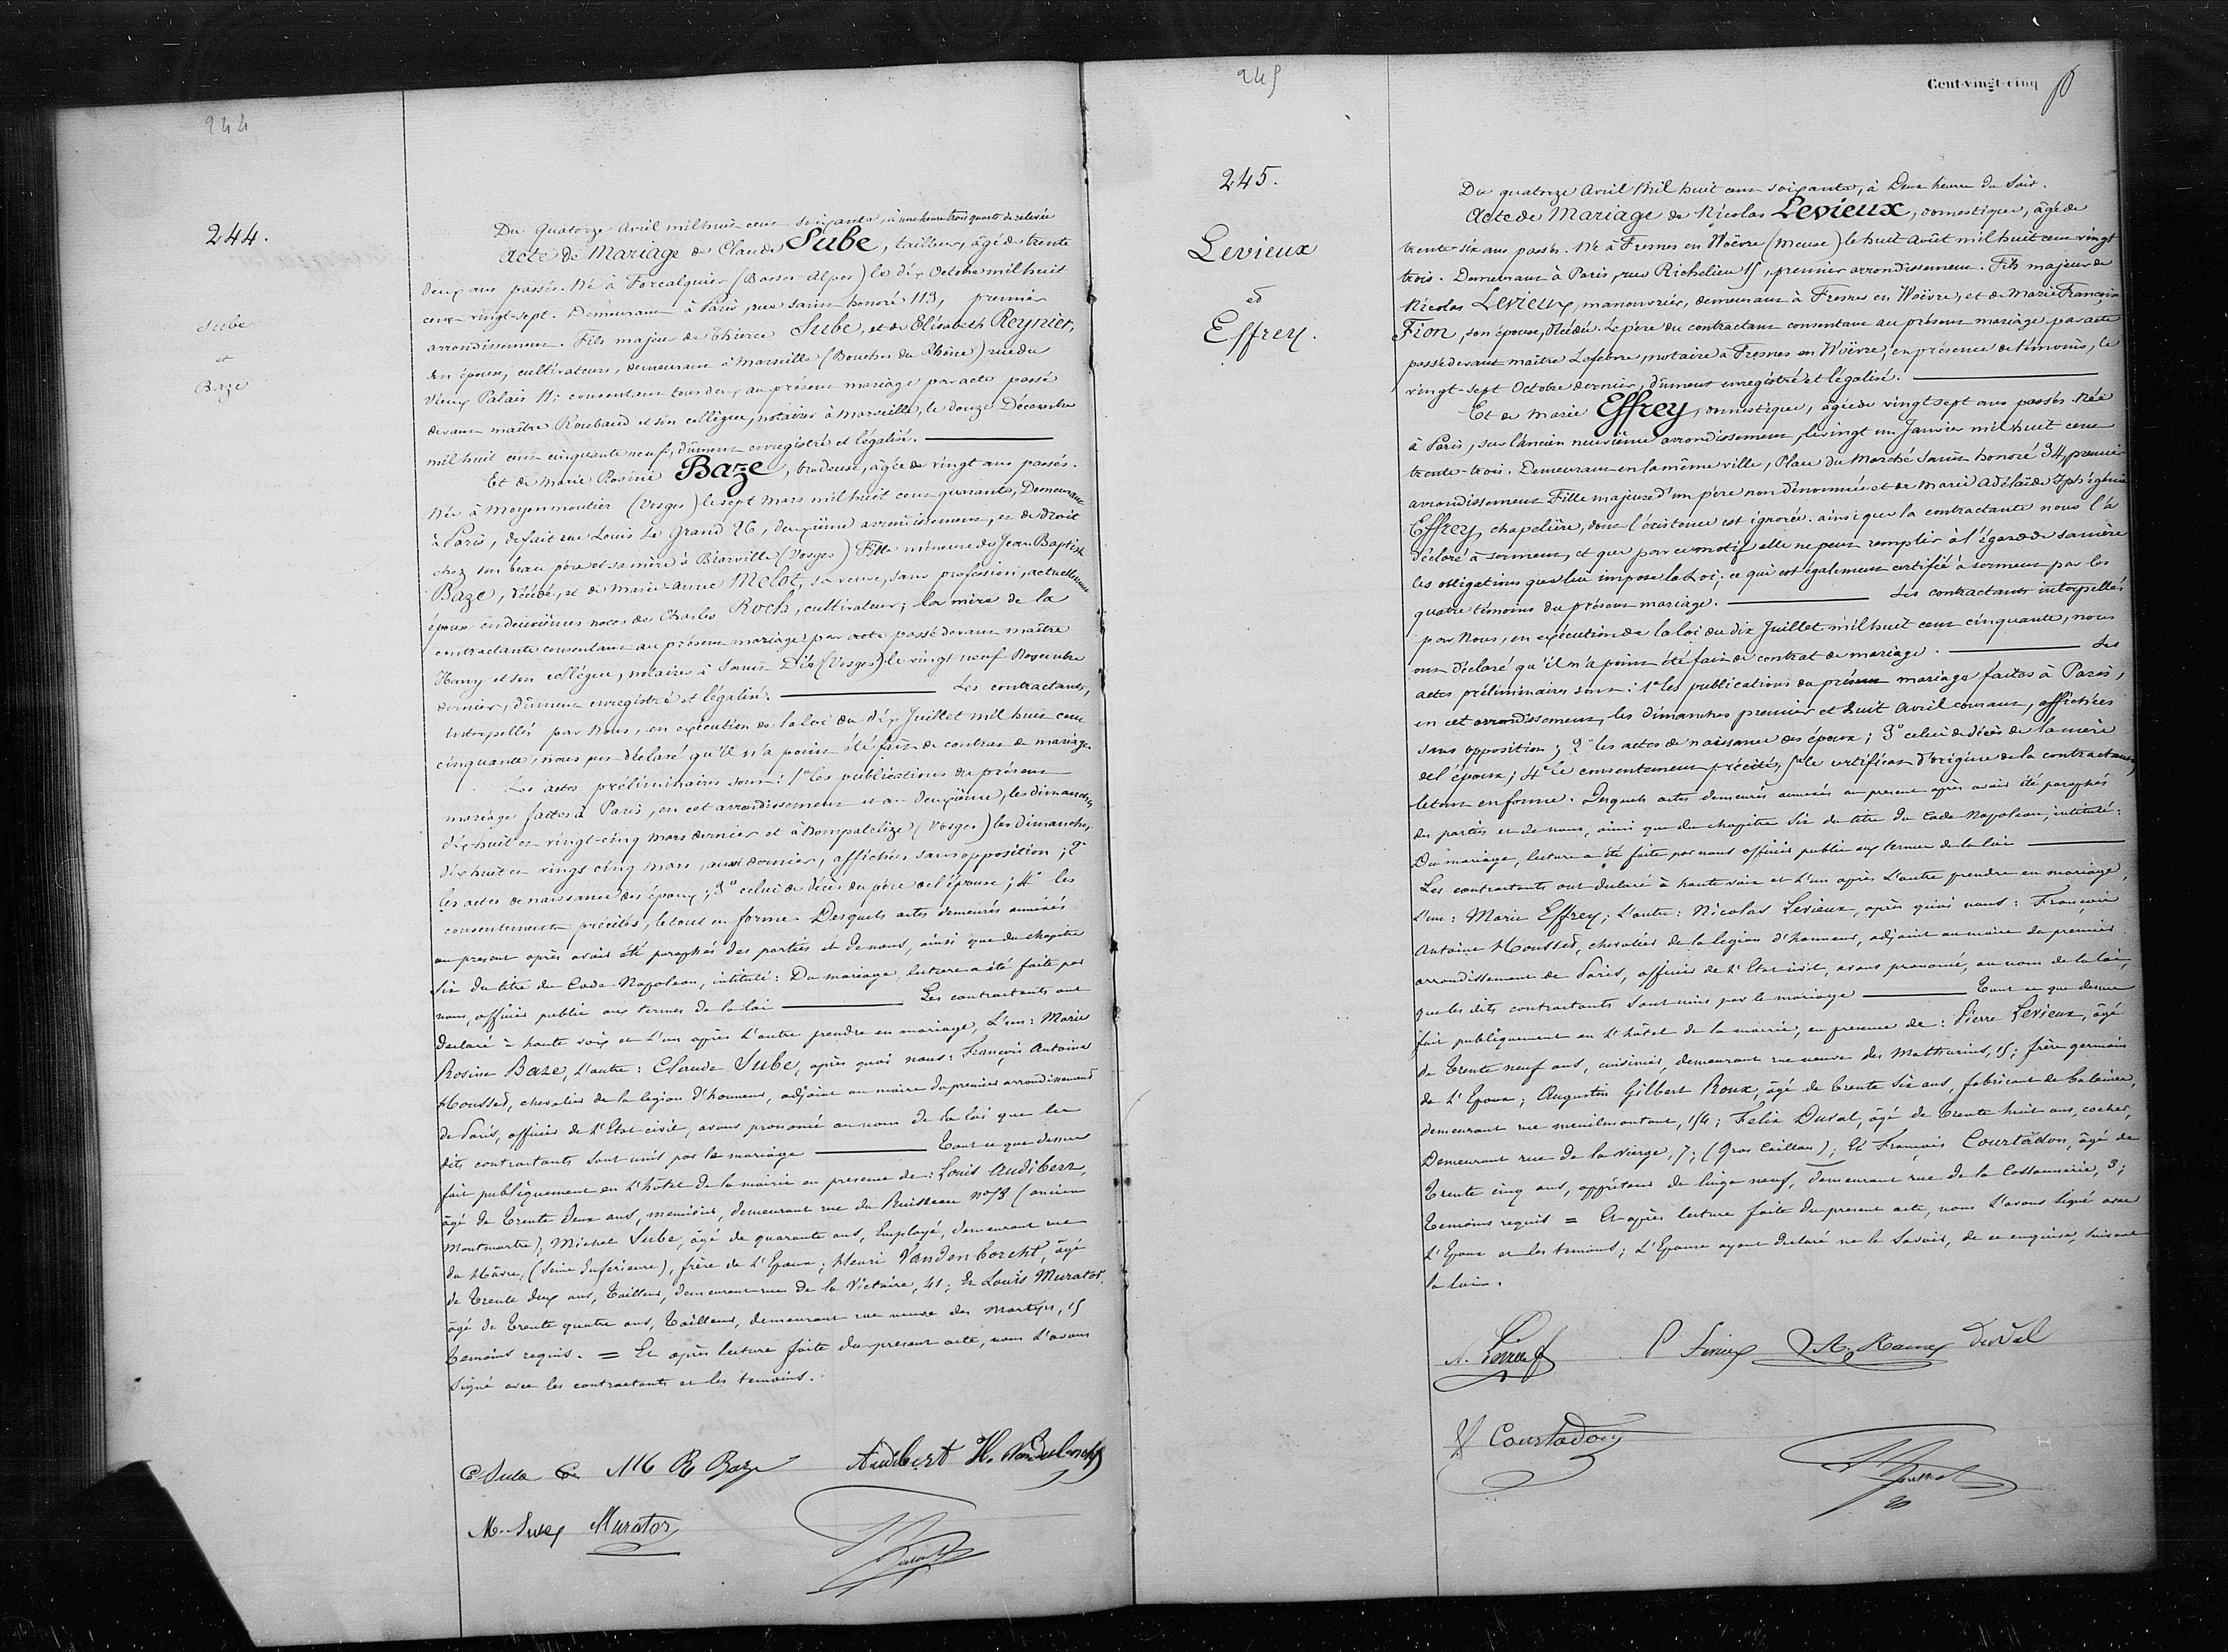 244
244.
Sube
et
Baze
Du Quatorze Avril mil huit cent soixante, à une heure trois quarts de relevée
Acte de Mariage de Claude Sube, tailleur, âgé de trente
deux ans passés. Né à Forcalquier (Basses-Alpes) le dix Octobre mil huit
cent vingt-sept. Demeurant à Paris, rue Saint honoré 113, premier
arrondissement. Fils majeur de Thierce Sube, et de Elisabeth Reynier,
son épouse, cultivateurs, demeurant à Marseille (Bouches du Rhône) rue du
Vieux Palais 11; consentant tous deux au présent mariage par acte passé
devant maître Roubaud et son collègue, notaires à Marseille, le douze Décembre
mil huit cent cinquante neuf, dûment enregistré et légalisé.
Et de Marie Rosine Baze, brodeuse, âgée de vingt ans passés.
Née à Moyenmoutier (Vosges) le sept Mars mil huit cent quarante, Demeurant
à Paris, de fait rue Louis Le Grand 26, deuxième arrondissement, et de droit
chez son beau père et sa mère à Biarville (Vosges) Fille mineure de Jean Baptiste
Baze, décédé, et de Marie-Anne Melot, sa veuve, sans profession, actuellement
épouse en deuxièmes noces de Charles Roch, cultivateur; la mère de la
contractante consentant au présent mariage par acte passé devant maître
Henry et son collègue, notaires à Saint Dié (Vosges) le vingt neuf Novembre
dernier, dûment enregistré et légalisé. Les contractants,
interpellés par Nous, en exécution de la loi du dix Juillet mil huit cent
cinquante, nous ont déclaré qu'il n'a point été fait de contrat de mariage
Les actes préliminaires sont: 1° les publications du présent
mariage faites à Paris, en cet arrondissement et au deuxième, les dimanches
dix-huit et vingt-cinq Mars dernier et à Nompatelize (Vosges) les Dimanches
dix huit et vingt cinq Mars, aussi dernier, affichées sans opposition; 2°
les actes de naissance des époux; 3° celui de décès du père de l'épouse; 4° les
consentements précités, le tout en forme. Desquels actes demeurés annexés
au present après avoir été paraphés des parties et de nous, ainsi que du chapitre
Six du titre du Code Napoleon, intitulé: Du mariage, lecture a été faite par
nous, officier public aux termes de la loi Les contractants ont
declaré à haute voix et L'un après L'autre prendre en mariage, L'un: Marie
Rosine Baze, L'autre: Claude Sube, après quoi nous: François Antoine
Housset, chevalier de la legion d'honneur, adjoint au maire du premier arrondissement
de Paris, officier de l'Etat civil, avons prononcé au nom de la loi que les
dits contractants sont unis par le mariage Tout ce que dessus
fait publiquement en L'hôtel de la mairie en presence de: Louis Audibert,
âgé de Trente deux ans, menuisier, demeurant rue du Ruisseau no 58 (ancien
Montmartre); Michel Sube, âgé de quarante ans, Employé, demeurant rue
du Hâvre, (Seine Inferieure), frère de L'Epoux; Henri Vandenborcht, âgé
de Trente deux ans, Tailleur, demeurant rue de la Victoire, 41; Et Louis Murator,
âgé de Trente quatre ans, Tailleur, demeurant rue neuve des Martyrs, 15
Temoins requis. = Et après lecture faite du present acte, nous L'avons
signé avec les contractants et les temoins.
C Sube M R Baze Audibert H. Vandenborcht
M. Sube Murator
245
Cent-vingt-cinq
245.
Levieux
et
Effrey.
Du quatorze Avril Mil huit cent soixante, à Deux heures du Soir.
Acte de Mariage de Nicolas Levieux, domestique, âgé de
trente-six ans passés. Né à Fresnes en Woëvre (Meuse) le huit Août mil huit cent vingt
trois. Demeurant à Paris, rue Richelieu 15, premier arrondissement. Fils majeur de
Nicolas Levieux, manouvrier, demeurant à Fresnes en Woëvre, et de Marie Françoise
Fion, son épouse, décédée. Le père du contractant consentant au présent mariage par acte
passé devant maître Lefebvre, notaire à Fresnes en Woëvre, en présence de témoins, le
vingt-sept Octobre dernier, dûment enregistré et légalisé.
Et de Marie Effrey, domestique, âgée de vingt sept ans passés. Née
à Paris, sur l'ancien neuvième arrondissement, le vingt un Janvier mil huit cent
trente-trois. Demeurant en la même ville, Place du Marché Saint honoré 34, premier
arrondissement Fille majeure d'un père non dénommé et de Marie Adélaïde Iphigénie
Effrey, chapelière, dont l'existence est ignorée. ainsi que la contractante nous l'a
déclaré à serment, et que par ce motif elle ne peut remplir à l'égard de sa mère
les obligations que lui impose la Loi; ce qui est également certifié à serment par les
quatre témoins du présent mariage. Les contractants interpellés
par Nous, en exécution de la loi du dix Juillet mil huit cent cinquante, nous
ont déclaré qu'il n'a point été fait de contrat de mariage. Les
actes préliminaires sont: 1° les publications du présent mariage faites à Paris,
en cet arrondissement, les dimanches premier et huit Avril courant, affichées
sans opposition; 2° les actes de naissance des époux; 3° celui de décès de la mère
de l'époux; 4° le consentement précité; 5° le certificat d'origine de la contractante,
le tout en forme. Desquels actes demeurés annexés au present après avoir été paraphés
des parties et de nous, ainsi que du chapitre Six du titre du Code Napoleon, intitulé:
Du mariage, lecture a été faite par nous officier public aux termes de la loi
Les contractants ont declaré à haute voix et L'un après L'autre prendre en mariage,
L'un: Marie Effrey; L'autre: Nicolas Levieux, après quoi nous: François
Antoine Housset, chevalier de la legion d'honneur, adjoint au maire du premier
arrondissement de Paris, officier de L'Etat civil, avons prononcé, au nom de la loi,
que les dits contractants sont unis par le mariage Tout ce que dessus
fait publiquement en L'hôtel de la mairie, en presence de: Pierre Levieux, âgé
de Trente neuf ans, cuisinier, demeurant rue neuve des Mathurins, 15; frère germain
de L'Epoux; Augustin Gilbert Roux, âgé de Trente Six ans, fabricant de baleines,
demeurant rue menilmontant, 14; Felix Duval, âgé de Trente huit ans, cocher,
Demeurant rue de la Vierge, 7; (Gros Caillou); Et François Courtadon, âgé de
Trente cinq ans, apprêteur de linge neuf, demeurant rue de la Cossonnerie, 3;
Temoins requis = Et après lecture faite du present acte, nous L'avons signé avec
L'Epoux et les temoins; L'Epouse ayant declaré ne le savoir, de ce enquise, suivant
la loi.
N. Levieux P Levieux A. Roux Duval
F Courtadon
Housset